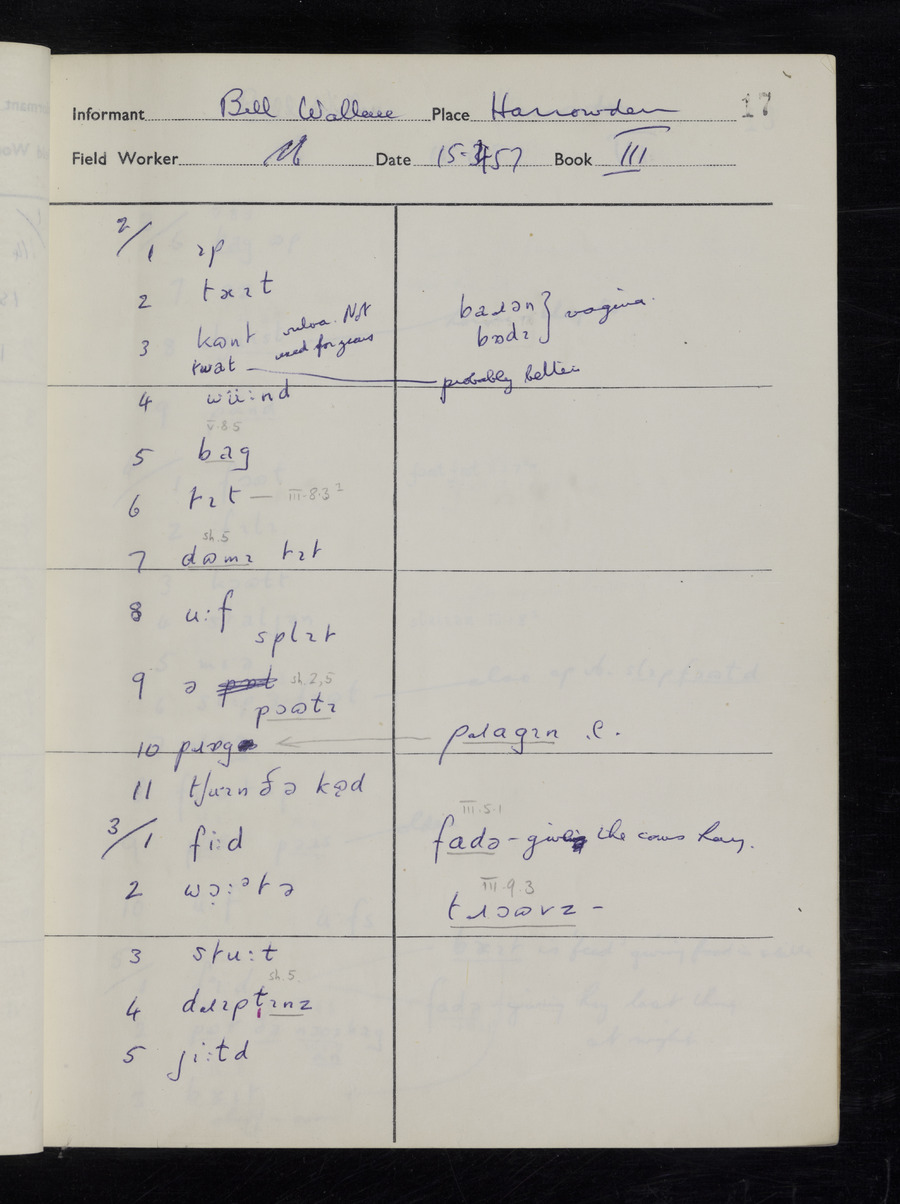 Informant Bill Wallace Place Harrowden 17
Field Worker Date 15-3-57 Book III
2/1 ɪp
2 tɪt
3 kɷnt vulva. Not used for cows
badən } vagina.
bɒdɪ
twat — probably better
4 wïi:nd
V.8.5
5 bag
6 tɪt — III.8.3²
sh.5
7 dɷmɪ tɪt
8 u:f
splɪt
9 ə sh.2,5
pɔɷtɪ
10 pɹɒg
pɹagɪn .
11 ðə kəd
3/1 fi:d
III.5.1
fadə - giving the cows hay.
2 wə:ətə
III.9.3
tɹɔɷvz -
3 stu:t
sh.5.
4 dɹɪptɪnz
5 ji:td